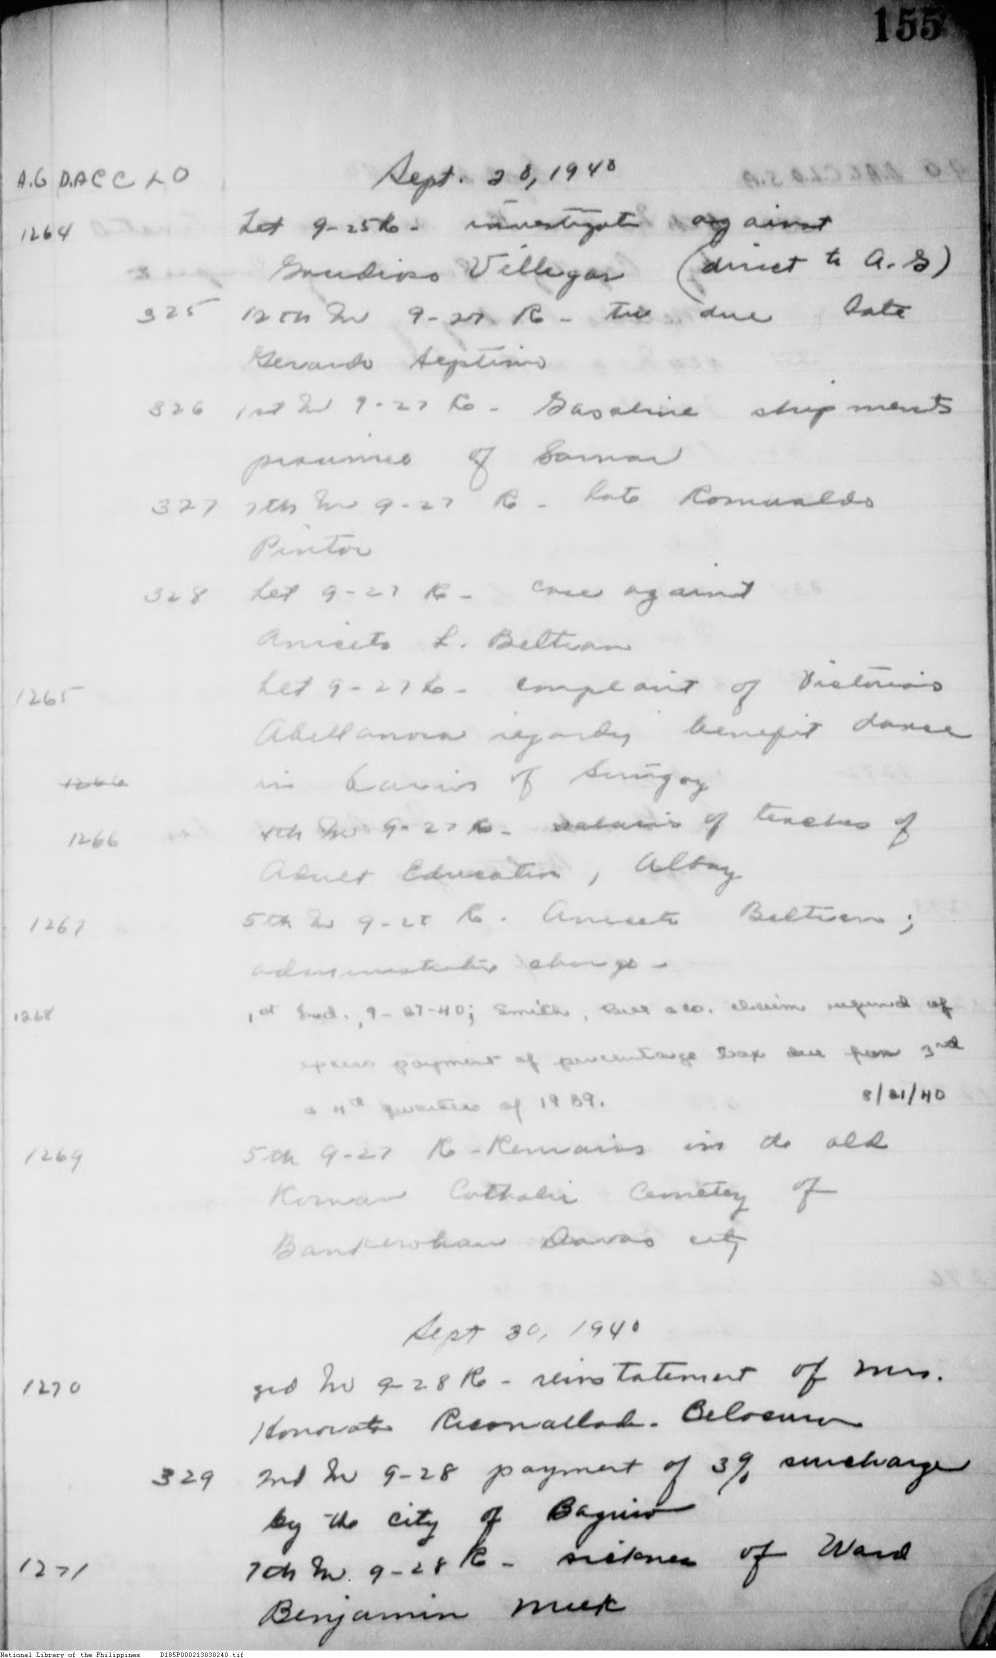 155
A.G D.A C C L O Sept. 28, 1940
1264 Let 9-25 Re - investigate against
Gaudioso Villegas (direct to A.G)
325 12th In 9-27 Re - due late
Gerardo Septimo
326 1st In 9-27 Re - Gasoline shipments
province of Samar
327 7th In 9-27 Re - late Romualdo
Pintor
328 Let 9-27 Re - case against
Aniceto L. Beltran
1265 Let 9-27 Re - complaint of Victorias
Abellanosa regarding benefit dance
1266 in barrio of
1266 4th In 9-27 Re - salaries of teachers of
Adult Education, Albay
1267 5th In 9-28 Re - Aniceto Beltran;
administrative charge -
1268 1st Ind., 9-27-40; Smith, Bell & Co. claim refund of
excess payment of percentage tax due from 3rd
& 4th quarters of 1939. 8/21/40
1269 5th 9-27 Re - Remains in the old
Roman Catholic Cemetery of
Bankerohan Davao city
Sept 30, 1940
1270 3rd In 9-28 Re - reinstatement of Mrs.
Honorata
329 2nd In 9-28 payment of 3% surcharge
by the city of Baguio
1271 7th In. 9-28 Re - sickness of Ward
Benjamin Meek
National Library of the Philippines D185P000213830240.tif